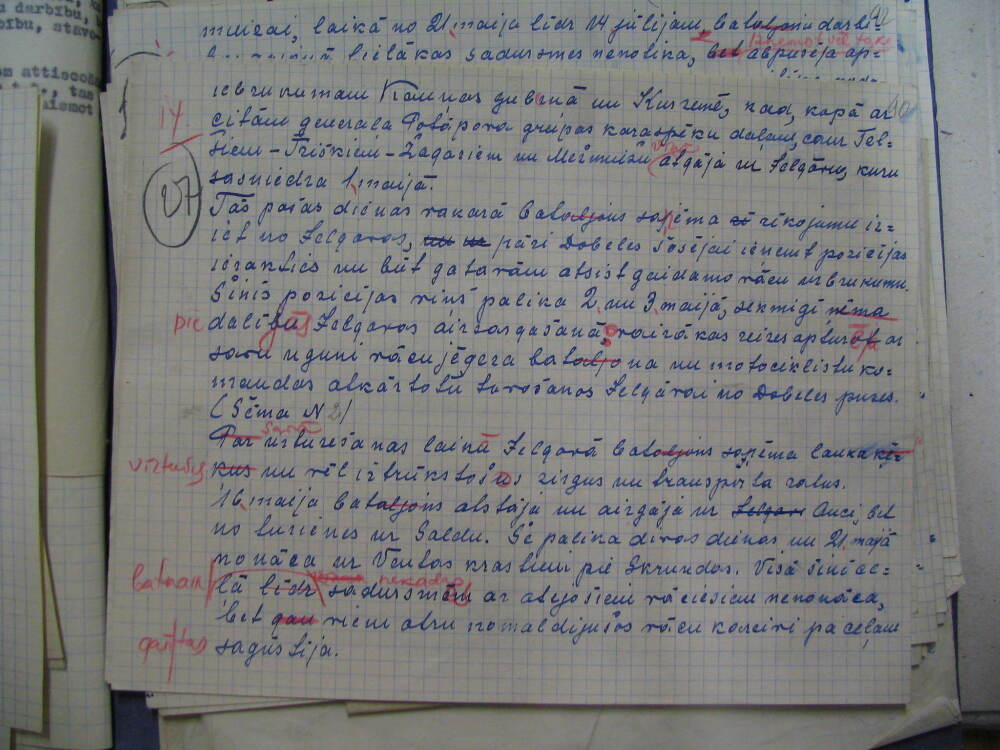 u darbību,
bību, stāvo-
om attiecoš
t.i., tas
aismot
muižai, laikā no 21. maija līdz 14 jūlijam, bataljona darbī-
lielākas sadursmes nenotika, bet abpusēja ap-
90
iebrukumam Kauņas gubernā un Kurzemē, kad, kopā ar
citām generaļa Potapova grupas karaspēku daļām, caur Tel-
šiem-Trišķiem-Žagariem un Mežmuižu atgāja uz Jelgavu, kuru
sasniedza 1. maijā.
IV
27
Tās pašas dienas vakarā bataljons saņēma rīkojumu iz-
iet no Jelgavas, un uz pāri Dobeles šosejai ieņemt pozicijas
ierakties un būt gatavām atsist gaidamo vācu uzbrukumu.
Šinīs pozicijas viņš palika 2. un 3. maijā, sekmīgi ņēma
pie dalību Jelgavas aizsargāšanā, vairākas reizes apturot ar
savu uguni vācu jēgera bataljona un motociklistu ko-
mandas atkārtotu tuvošanos Jelgavai no Dobeles puses.
(Sēma N 2)
savā
Par uzturēšanas laikā Jelgavā bataljons saņēma lauka ķē-
virtuves kus un vēl iztrūkstošus zirgus un transporta ratus.
16. maijā bataljons atstāja un aizgāja uz Jelgavu Auci, bet
no turienes uz Saldu. Šē palika divas dienas un 21. maijā
nonāca uz Ventas krastiem pie Skrundas. Visā šinī ce-
ļā līdz nekādās sadursmēm ar atejošiem vāciešiem nenonāca,
bet gan vienu otru nomaldijušos vācu kareivi pa ceļam
gan/tas sagūstija.